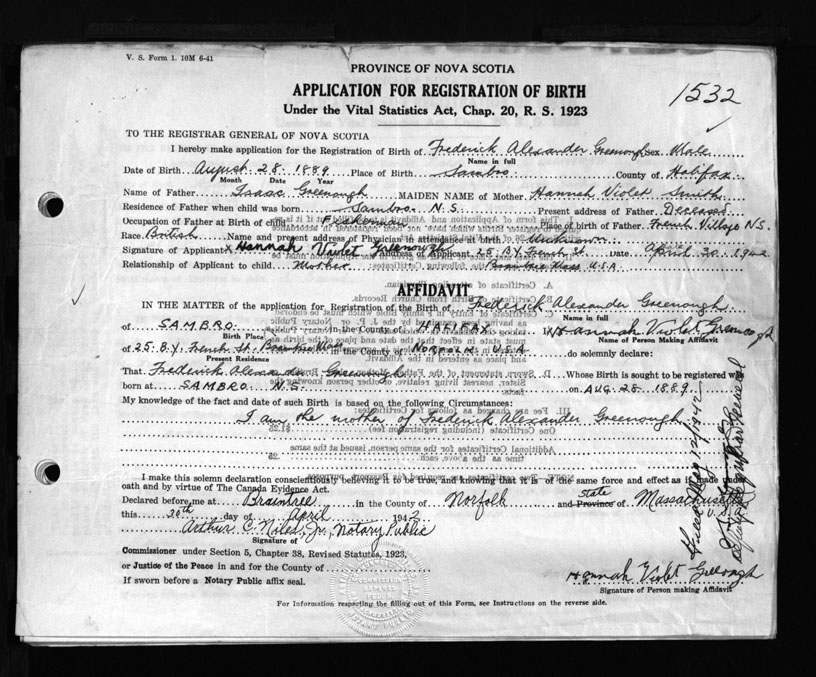 V. S. Form 1. 10M 6-41
PROVINCE OF NOVA SCOTIA
APPLICATION FOR REGISTRATION OF BIRTH
1532
Under the Vital Statistics Act, Chap. 20, R. S. 1923
TO THE REGISTRAR GENERAL OF NOVA SCOTIA
I hereby make application for the Registration of Birth of Frederick Alexander Greenough Sex Male
Name in full
Date of Birth August 28 1889 Place of Birth Sambro County of Halifax
Month Date Year
Name of Father Isaac Greenough MAIDEN NAME of Mother Hannah Violet Smith
Residence of Father when child was born Sambro N.S. Present address of Father Deceased
Occupation of Father at Birth of child Fisherman Place of birth of Father French Village N.S.
Race British Name and present address of Physician in attendance at birth Unknown
Signature of Applicant X Hannah Violet Greenough Address of Applicant 25 B.Y. French St. Date April 30 1942
Relationship of Applicant to child Mother Braintree Mass U.S.A.
AFFIDAVIT
IN THE MATTER of the application for Registration of the Birth of Frederick Alexander Greenough
Name in full
of SAMBRO in the County of HALIFAX I, Hannah Violet Greenough
Birth Place Name of Person Making Affidavit
of 25 B.Y. French St. Braintree Mass in the County of NORFOLK U.S.A do solemnly declare:
Present Residence
That Frederick Alexander Greenough Whose Birth is sought to be registered was
born at SAMBRO N.S. on AUG 28 1889
My knowledge of the fact and date of such Birth is based on the following Circumstances:
I am the mother of Frederick Alexander Greenough
I make this solemn declaration conscientiously believing it to be true, and knowing that it is of the same force and effect as if made under
oath and by virtue of The Canada Evidence Act.
Declared before me at Braintree in the County of Norfolk and State Province of Massachusetts
this 30th day of April 1942 U.S.A.
Arthur C. Niles, Jr., Notary Public
Commissioner under Section 5, Chapter 38, Revised Statutes, 1923,
or Justice of the Peace in and for the County of
If sworn before a Notary Public affix seal.
Hannah Violet Greenough
Signature of Person making Affidavit
For Information respecting the filling out of this Form, see Instructions on the reverse side.
May 12/1942
Deputy Registrar General